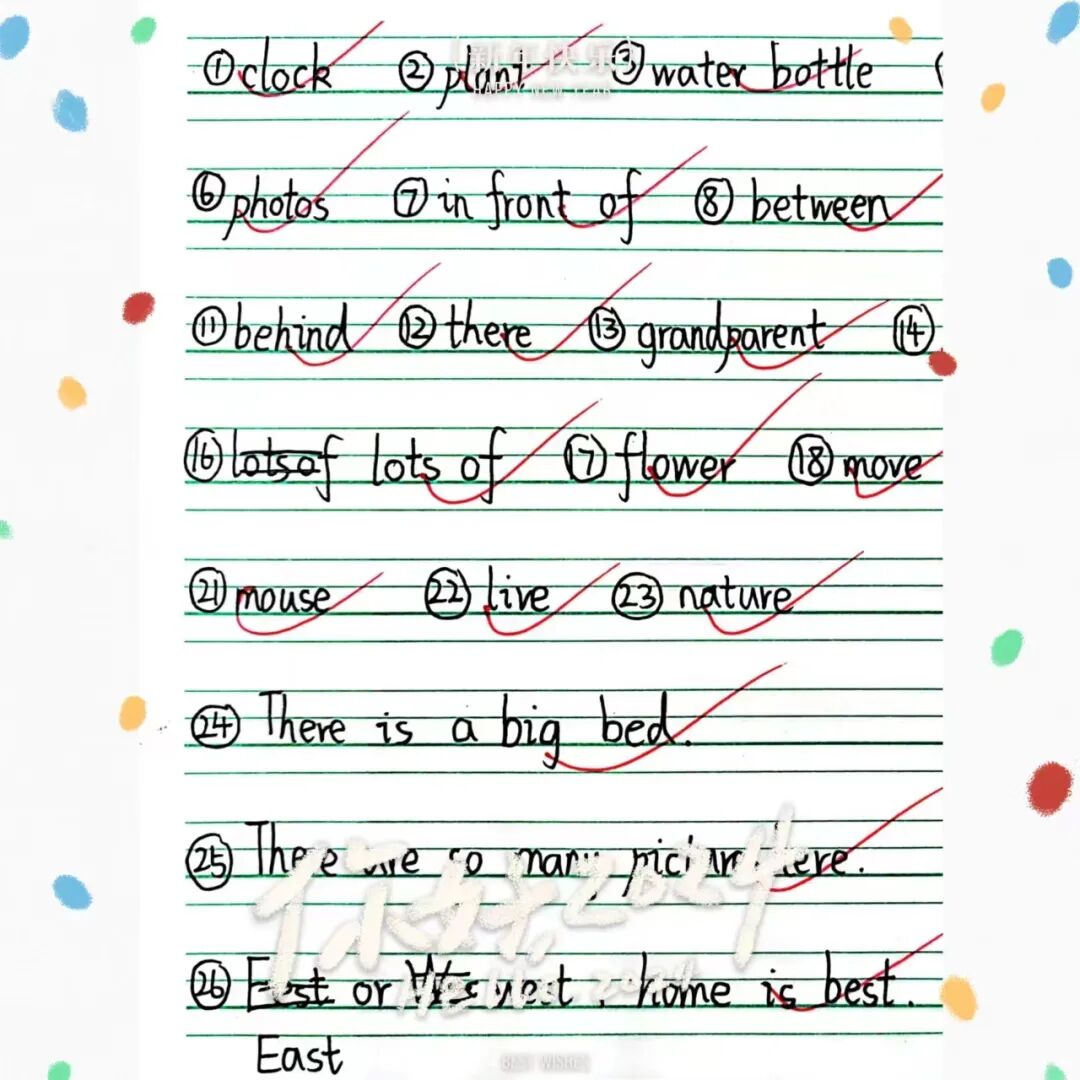 新年快乐
HAPPY NEW YEAR
①clock ②plant ③water bottle
⑥photos ⑦in front of ⑧between
⑪behind ⑫there ⑬grandparent ⑭
⑯lotsof lots of ⑰flower ⑱move
㉑mouse ㉒live ㉓nature
㉔There is a big bed.
㉕There are so many pictures here.
你好,2024
㉖East or west home is best.
Hello, 2024
East
BEST WISHES